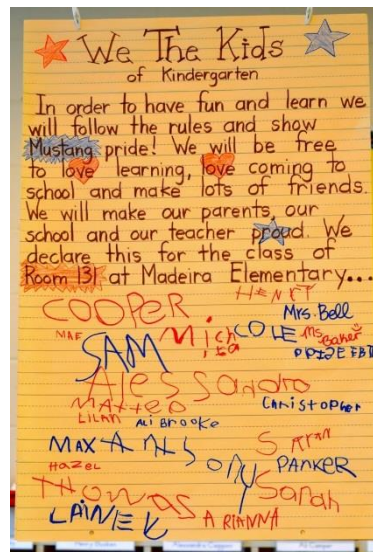 We The Kids
of Kindergarten
In order to have fun and learn we
will follow the rules and show
Mustang pride! We will be free
to love learning, love coming to
school and make lots of friends.
We will make our parents, our
school and our teacher proud. We
declare this for the class of
Room 131 at Madeira Elementary...
HENRY
COOPER
Mrs. Bell
MAE
Mich
COLE
Ms. Baker
SAM
Alessandro
MATTEO
Christopher
LILAH
Ali Brooke
MAX
SARAH
HAZEL
PARKER
THOMAS
Sarah
LAINEY
ARIANNA